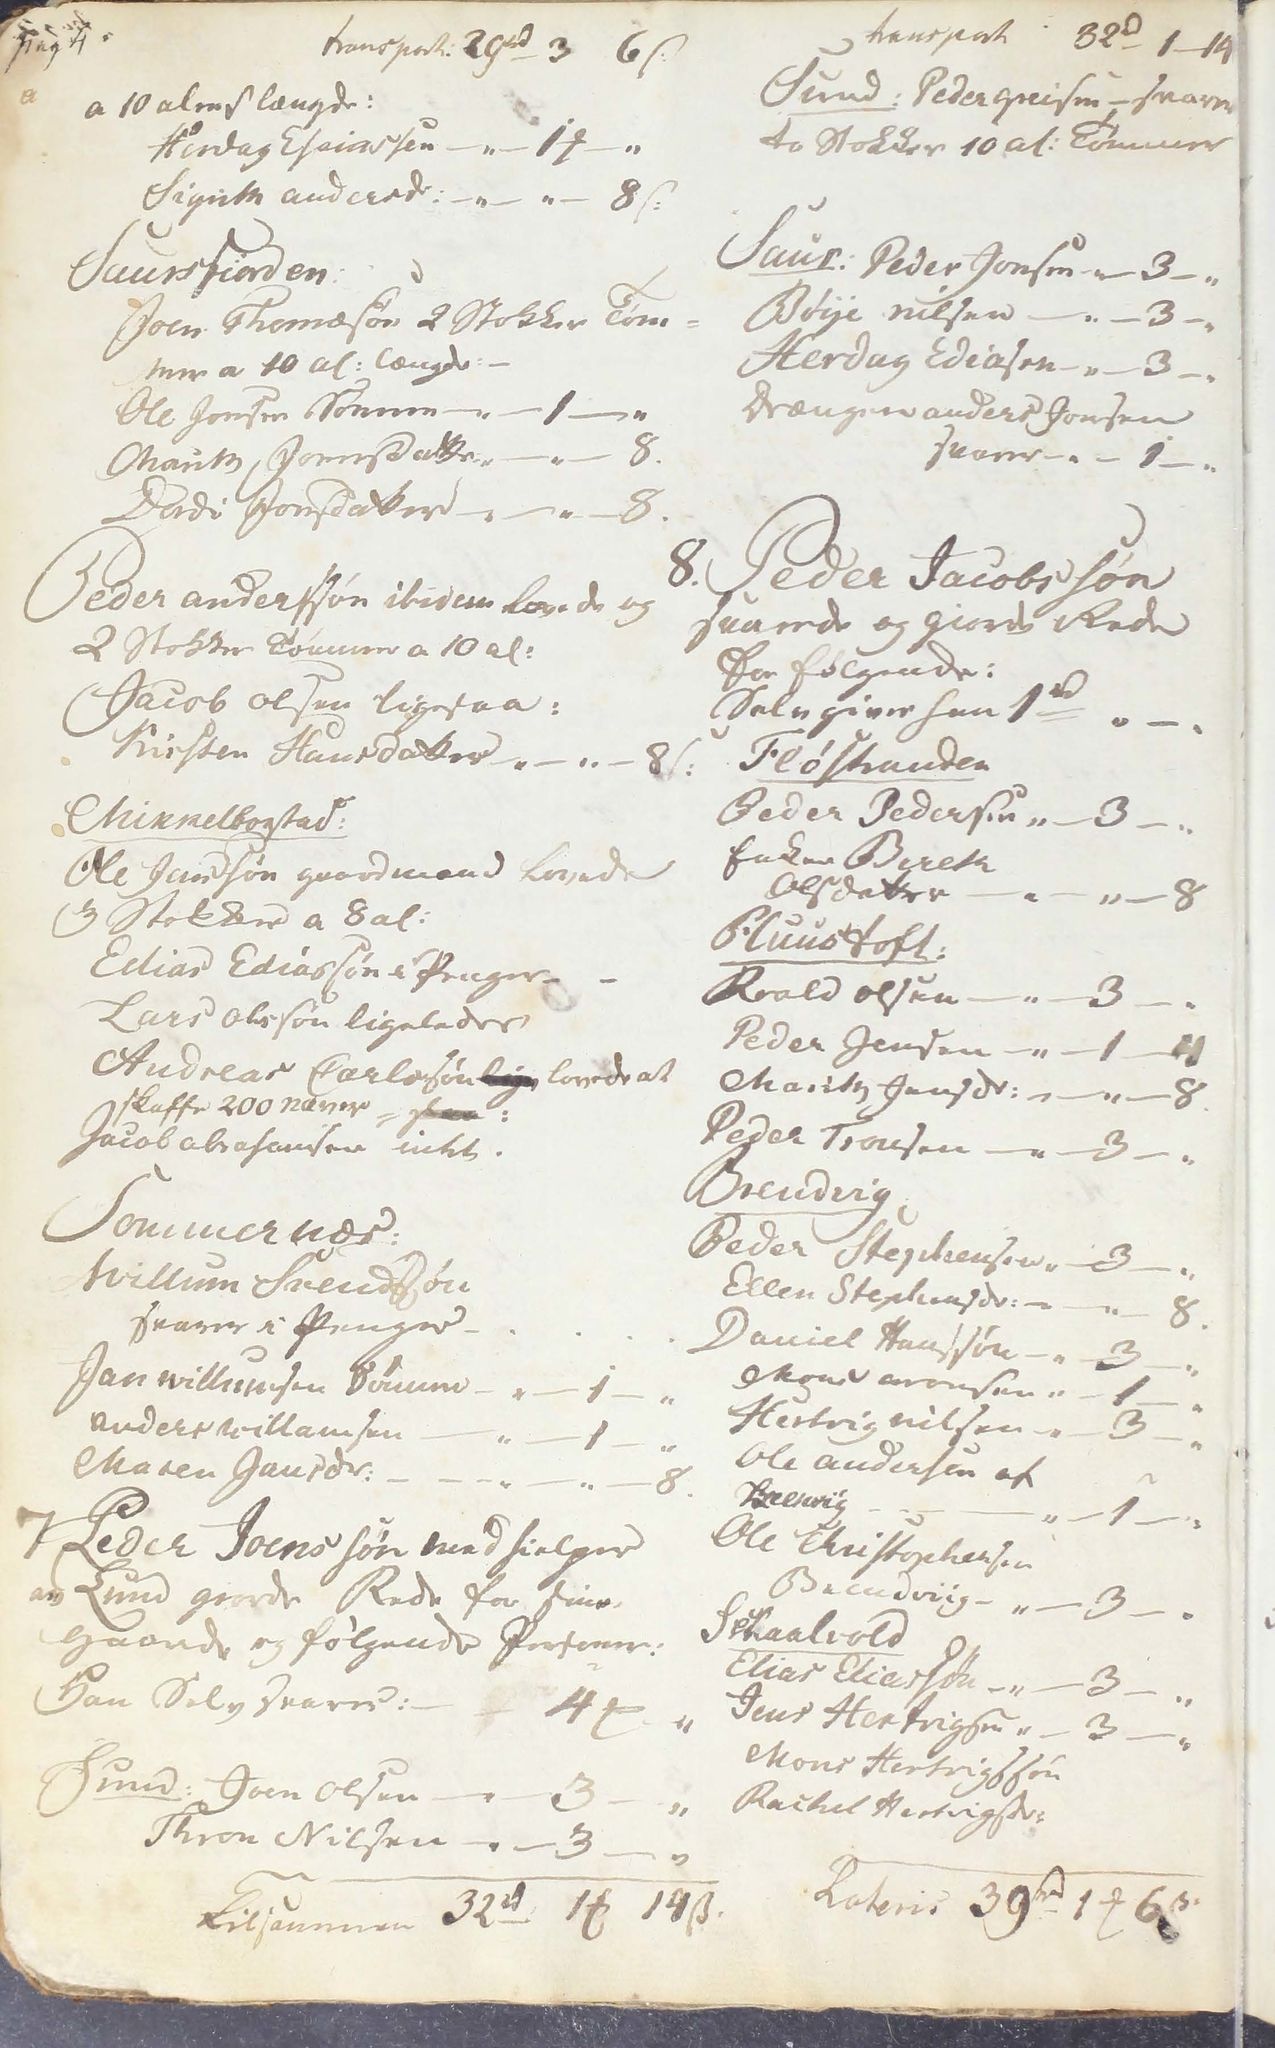 transport: 29rd 3 6ß.
a 10 alens længde:
Herdag Esaiassen - " - 1 ₰ - "
Sigrith andersdr: - " - " - 8ß:
Saursfiorden:
Joen Thomæsøn 2 Stokker Tøm=
mer a 10 al: længde: -
Ole Jonsen Tømmer - " - 1 - "
Marith Joensdatter - " - 8.
Dordi Jonsdatter - " - " - 8.
Peder andersøn ibidem lovede og
2 Stokker Tømmer a 10 al:
Jacob olsen ligesaa:
Kirsten Hansdatter - " - " - 8ß:
Mikkelborstad:
Ole Jansøn gaardmand lovede
3 Stokker a 8 al:
Edias Ediassøn i Penger - -
Lars olssøn ligeledes
Andreas Carlesøn lovede at
skaffe 200 næver
Jacob abrahamsen intet.
Sommernæs:
Willum Svendsøn
svarer i Penger - . . . .
Jan willumsen Tømmer - " - 1 - "
anders willamsen - " - 1 - "
Maren Jansdr: - - " - " - 8.
7 Peder Joenssøn medhielper
paa Lund giorde Rede for sine
Gaarde og følgende Personer:
Han Selv svarer: - 4 ₰ "
Sund: Joen olsen - " - 3 - "
Thron Nilsen - " - 3 - "
Tilsammen 32rd 1₰ 14ß.
transport 32rd 1 - 14
Sund: Peder greisen - svarer
to Stokker 10 al: Tømmer
Saur: Peder Jonsen - " - 3 - "
Bøye nilsen - " - 3 - "
Herdag Ediasen - " - 3 - "
Drængen anders Jonsen
svarer - " - 1 - "
8. Peder Jacobssøn
svarede og giorde Rede
for følgende:
Selv giver han 1rd " - "
Fløstranden
Peder Pedersen " - 3 - "
Enken Bereth
Olsdatter - " - " - 8
Fluustoft:
Roald olsen - " - 3 - "
Peder Jensen - " - 1 - 4
Marith Jansdr: - " - 8.
Peder Tronsen - " - 3 - "
Brendvig
Peder Stephensen " - 3 - "
Ellen Stephensdr: - " - 8.
Daniel Hanssøn - " 3 - "
Mons aronsen " - 1 - "
Hertvig nilsen - " - 3 - "
Ole andersen af
- " - 1 - "
Ole Christophersen
Brendviig - " - 3 - "
Skaalvold
Elias Eliassøn - " - 3 - "
Jens Hertvigsen " - 3 - "
Mons Hertvigssøn
Rachel Hertvigsdr:
Lateris 39rd 1₰ 6ß.